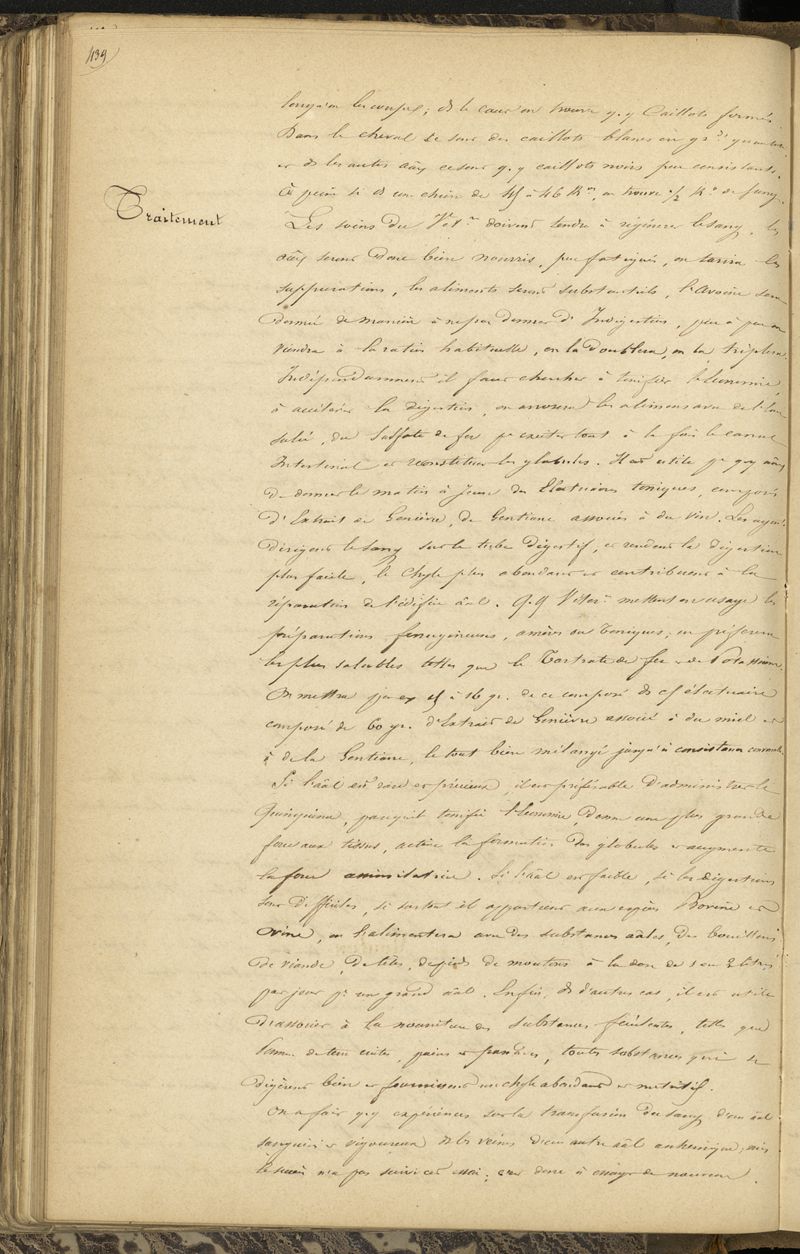 439
lorsqu'on les coupe ; ds le cœur on trouve q.q caillots formés.
Dans le cheval ce sont des caillots blancs en gde quantité
et ds les autres aux ce sont q.q caillots noirs peu consistants.
à peine si ds un chien de 45 à 46 K on trouve 1/2 K de sang.
Traitement
Les soins du Vét doivent tendre à régénérer le sang. les
aux seront donc bien nourris, peu fatigués, on tarira les
suppurations, les aliments seront substantiels, l'avoine sera
donnée de manière à ne pas donner d'Indigestion, peu à peu on
viendra à la ration habituelle, on la doublera, on la triplera.
Indépendamment il faut chercher à tonifier l'économie,
à accélérer la digestion, on arrosera les aliments avec de l'eau
salée, du sulfate de fer pr exciter tout à la fois le canal
Intestinal et reconstituer les globules. Il est utile pr q.q aux
de donner le matin à jeun des Electuaires toniques, composés
d'Extrait de Genièvre, de Gentiane associés à du vin. Les
dirigent le sang sur le tube digestif, et rendent la digestion
plus facile, le chyle plus abondant et contribuent à la
réparation de l'édifice aal. q.q Vétér mettent en usage les
préparations ferrugineuses, amères ou toniques, en préférence
les plus solubles telles que le Tartrate de fer et de Potassium.
On mettra par ex 15 à 16 gr. de ce composé ds cf électuaire
composé de 60 gr. d'Extrait de Genièvre associé à du miel et
à de la Gentiane, le tout bien mélangé jusqu'à consistance
Si l'aal est rare et précieux, il est préférable d'administrer le
Quinquina, parcequ'il tonifie l'économie, donne une plus grande
force aux tissus, active la formation des globules et augmente
la force assimilatrice. Si l'aal est faible, si les digestions
sont difficiles, si surtout il appartient aux espèces Bovine et
ovine, on l'alimentera avec des substances aales, des bouillons
de viande, de têtes, de pieds de moutons à la dose de 1 ou 2 litres
par jour pr un grand aal. Enfin, ds d'autres cas, il est utile
d'associer à la nourriture des substances féculentes, telles que
Pommes de terre cuites, pains et farines, toutes substances qui se
digèrent bien et fournissent un chyle abondant et nutritif.
On a fait q.q expériences sur la transfusion du sang d'un aal
sanguin et vigoureux ds les veines d'un autre aal anhémique, mais
le succès n'a pas suivi cet essai ; c'est donc à essayer de nouveau.